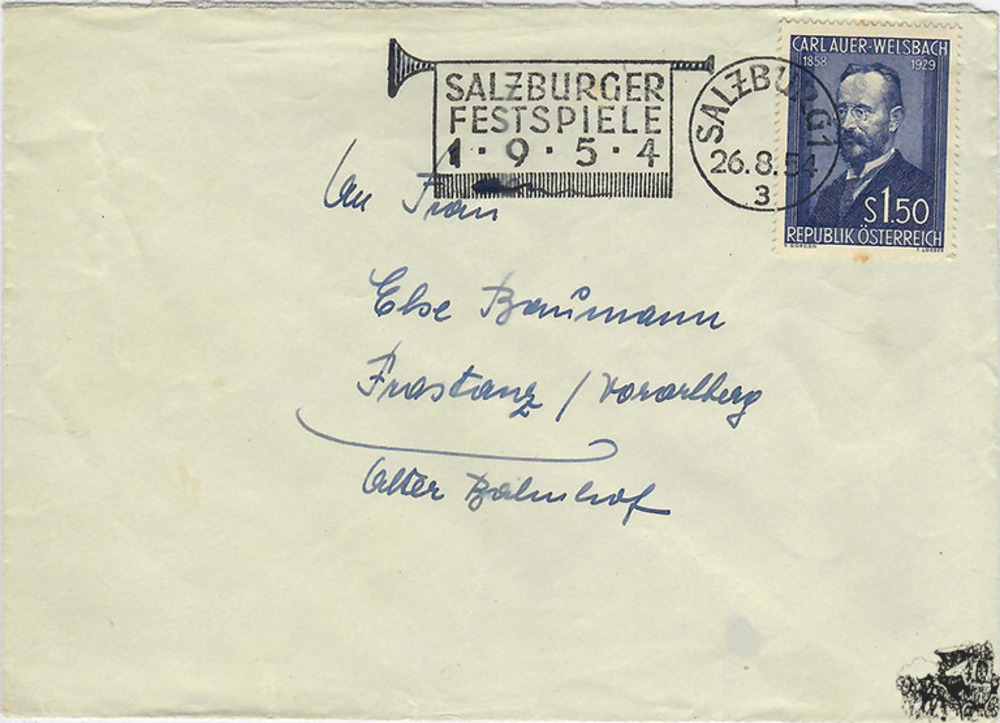 SALZBURGER
FESTSPIELE
1·9·5·4
SALZBURG 1
26.8.54
3
CARL AUER-WELSBACH
1858 1929
S1.50
REPUBLIK ÖSTERREICH
An Frau
Else Baumann
Frastanz / Vorarlberg
Alter Bahnhof